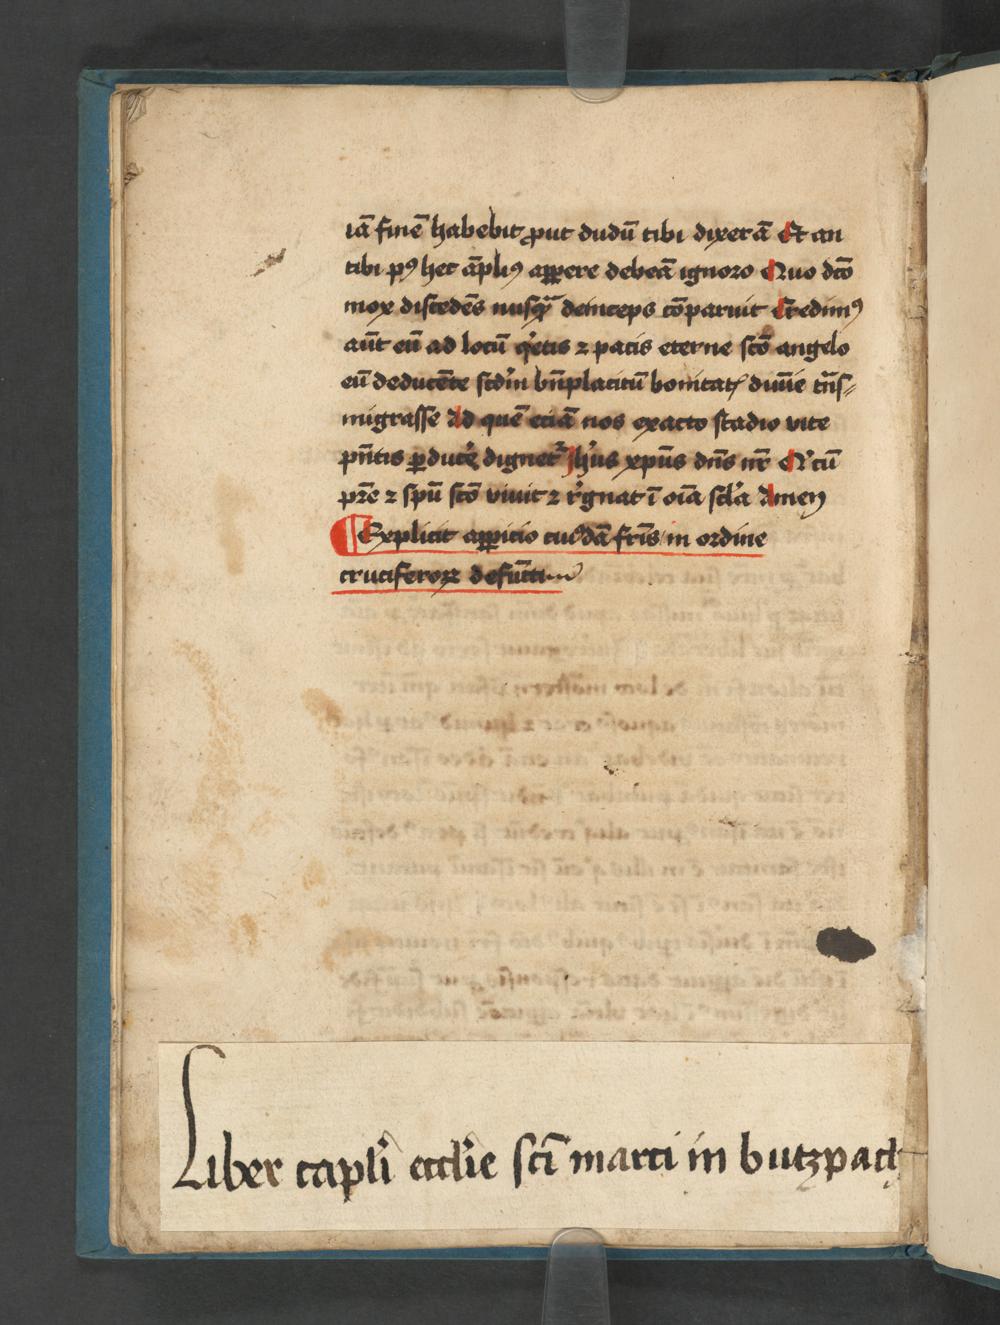 iā finē habebit ꝓut dudū tibi dixerā Et an
tibi pꝰ hec āpliꝰ apꝑere debeā ignoro Quo dc̄o
mox discedēs nusq̄ deinceps cōparuit Credimꝰ
aūt eū ad locū q'etis ⁊ pacis eterne sc̄o angelo
eū deducēte scd'm bn̄placitū bonitatꝭ diuīe tn̄s⸗
migrasse Ad quē eciā nos exacto stadio vite
pn̄tis ꝑducē dignet' Jh'us xp̄us dn̄s nr̄ Qꝰ cū
pr̄e ⁊ sp̄u sc̄o viuit ⁊ r'gnat ī oīa sc̄la Amen
¶ Explicit apꝑicio cuiꝰdā fr̄is in ordine
cruciferoꝝ defūcti
Liber capl'i eccl'ie sc̄i marci in butzpach